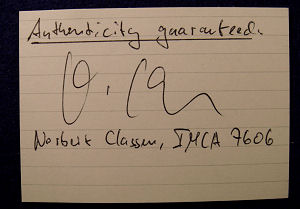 Authenticity guaranteed.
Norbert Classen, IMCA 7606